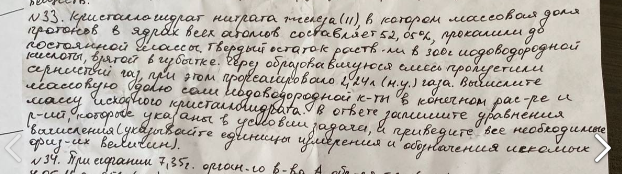 N33. Кристаллогидрат нитрата железа (II), в котором массовая доля
протонов в ядрах всех атомов составляет 52,08%, прокалили до
постоянной массы. Твердый остаток раств-ли в 300г иодоводородной
кислоты, взятой в избытке. Через образовавшуюся смесь пропустили
сернистый газ, при этом прореагировало 2,24л (н.у.) газа. Вычислите
массовую долю соли иодоводородной к-ты в конечном рас-ре и
массу исходного кристаллогидрата. В ответе запишите уравнения
р-ий, которые указаны в условии задачи, и приведите все необходимые
вычисления (указывайте единицы измерения и обозначения искомых
физ-их величин).
N34. При сгорании 7,35г. орган-го в-ва А